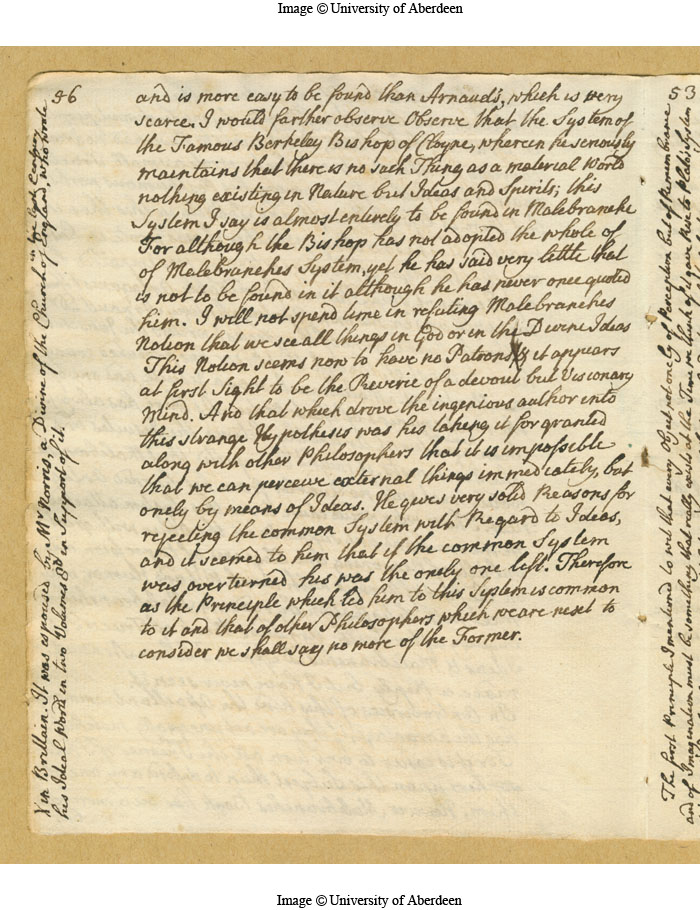 Image © University of Aberdeen
56
and is more easy to be found than Arnauds, which is very
scarce. I would farther observe Observe that the System of
the Famous Berkeley Bishop of Cloyne, wherein he seriously
maintains that there is no such Thing as a material World
nothing existing in Nature but Ideas and Spirits; this
System I say is almost entirely to be found in Malebranche
For although the Bishop has not adopted the whole of
of Malebranches System, yet he has said very little that
is not to be found in it although he has never once quoted
him. I will not spend time in refuting Malebranches
Notion that we see all things in God or in the Divine Ideas
This Notion seems now to have no Patrons & it appears
at first Sight to be the Reverie of a devout but Visionary
Mind. And that which drove the ingenious author into
this strange Hypothesis was his taking it for granted
along with other Philosophers that it is impossible
that we can perceive external things immediately, but
onely by means of Ideas. He gives very solid Reasons for
rejecting the common System with Regard to Ideas,
and it seemed to him that if the common System
was overturned his was the onely one left. Therefore
as the Principle which led him to this System is common
to it and that of other Philosophers which we are next to
consider we shall say no more of the Former.
X in Brittain. It was espoused by Mr Norris, a Divine of the Church of England, who wrote
in the last Century
his Ideal World in two Volumes 8vo in Support of it.
53
The first Principle I mentioned to wit that every Object not onely of Perception but of Remembrance
and of Imagination must be something that really exists at the Time we think of it gave Rise to Plato's System
Image © University of Aberdeen